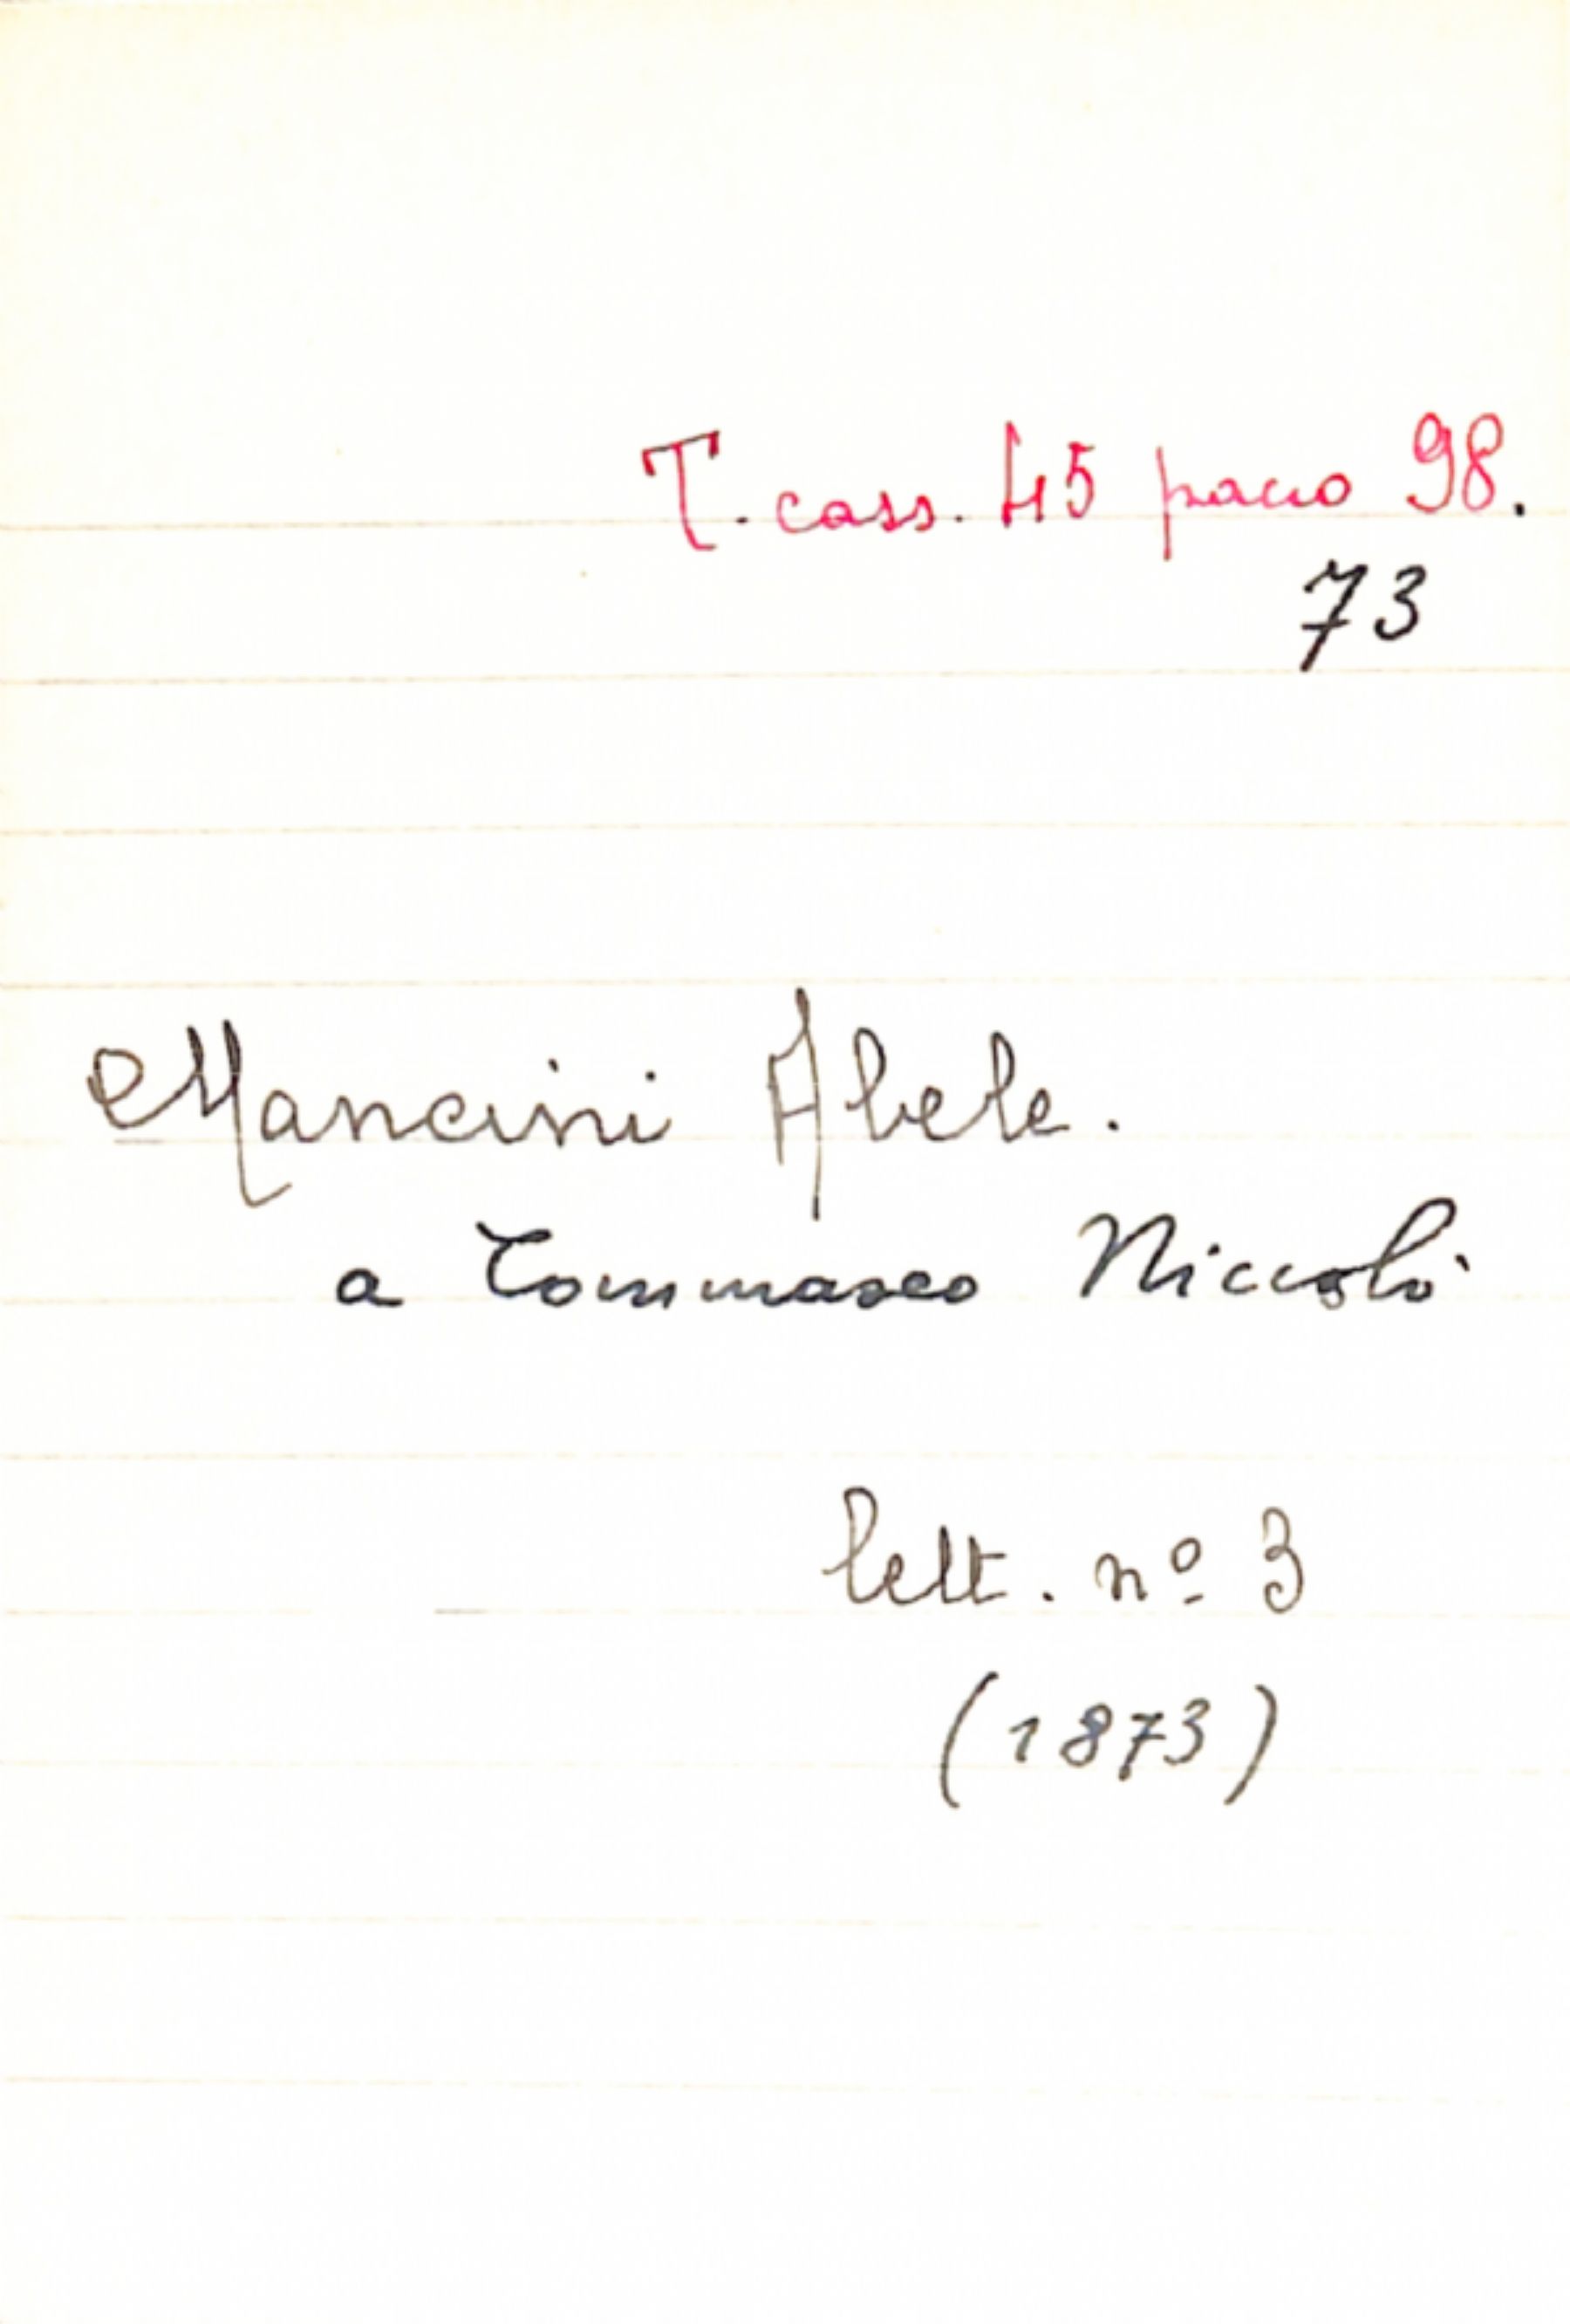 T. cass. 45 pacco 98.
73
Mancini Abele.
a Tommaseo Niccolò
lett. nº 3
(1873)